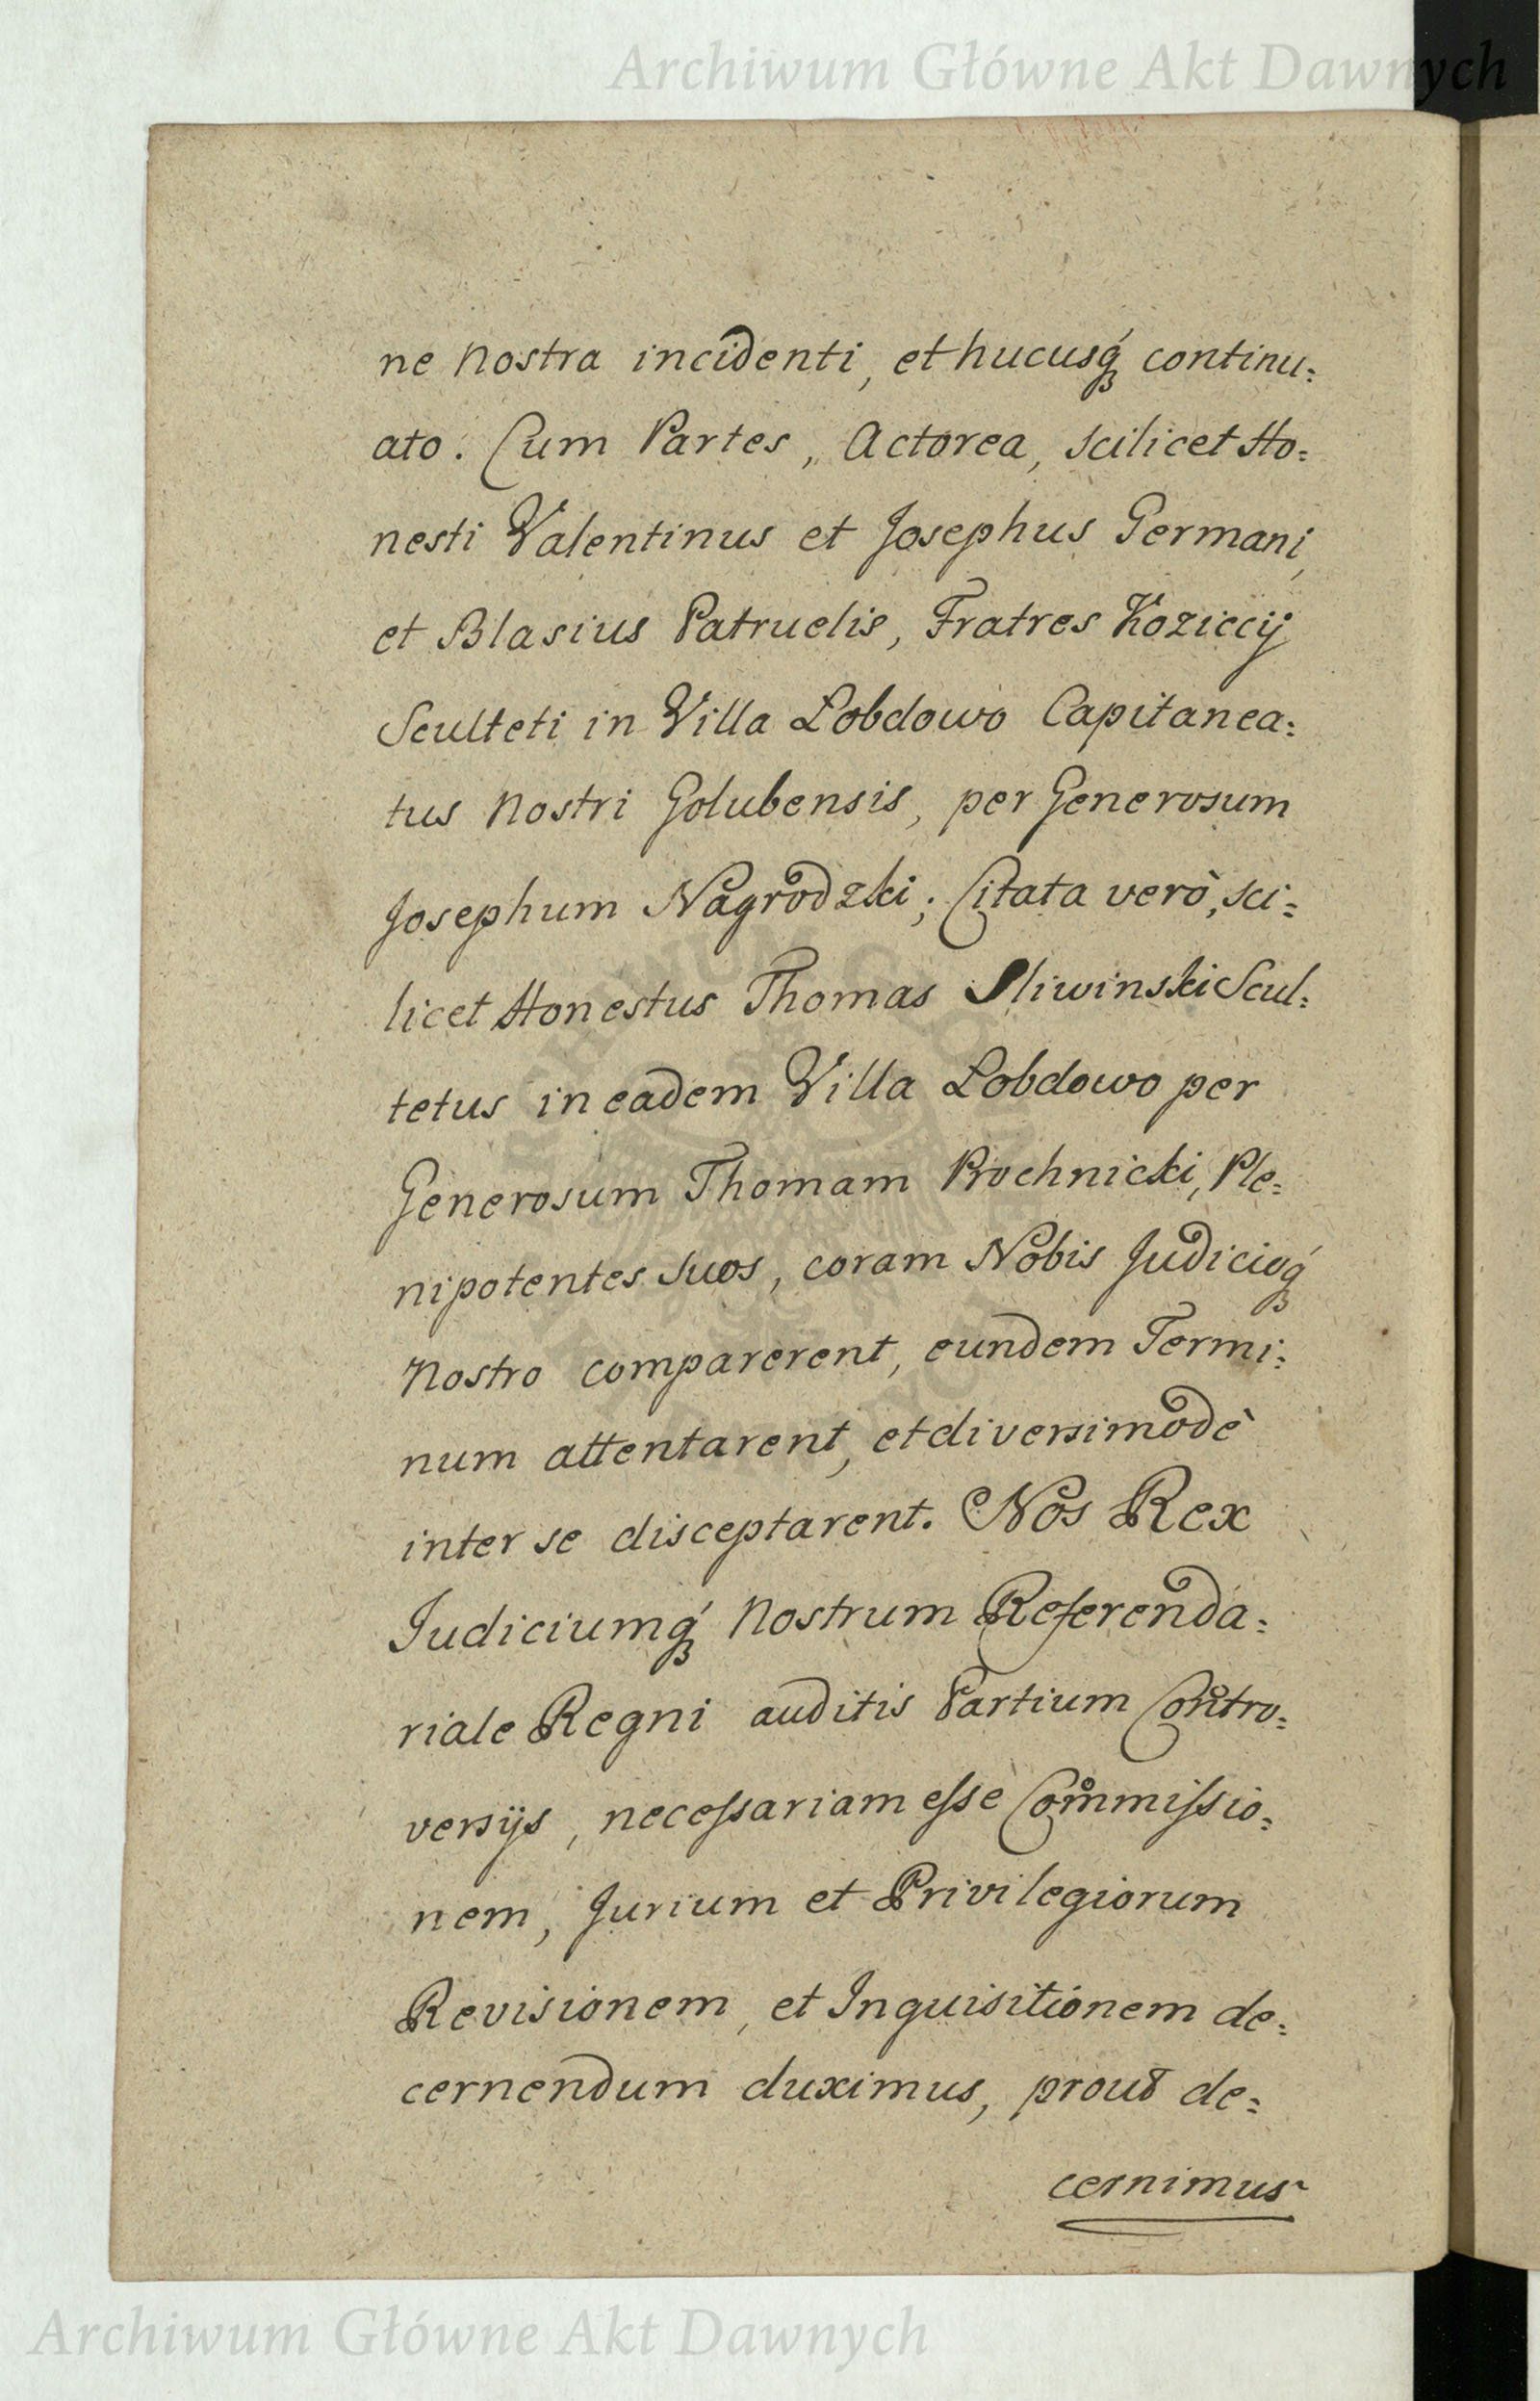 Archiwum Główne Akt Dawnych
ne Nostra incidenti, et hucusq́ꝫ continu=
ato. Cum Partes, Actorea, scilicet Ho=
nesti Valentinus et Josephus Germani,
et Blasius Patruelis, Fratres Koziccij
Sculteti in Villa Lobdowo Capitanea=
tus Nostri Golubensis, per Generosum
Josephum Nagrodzki; Citata verò, sci=
licet Honestus Thomas Sliwinski Scul=
tetus in eadem Villa Lobdowo per
Generosum Thomam Prochnicki, Ple=
nipotentes suos, coram Nobis Judicioq́ꝫ
Nostro comparerent, eundem Termi=
num attentarent, et diversimodè
inter se disceptarent. Nos Rex
Judiciumq́ꝫ Nostrum Referenda=
riale Regni auditis Partium Contro=
versijs, neceſsariam eſse Commiſsio=
nem, Jurium et Privilegiorum
Revisionem, et Inquisitionem de=
cernendum duximus, prout de=
cernimus
Archiwum Główne Akt Dawnych